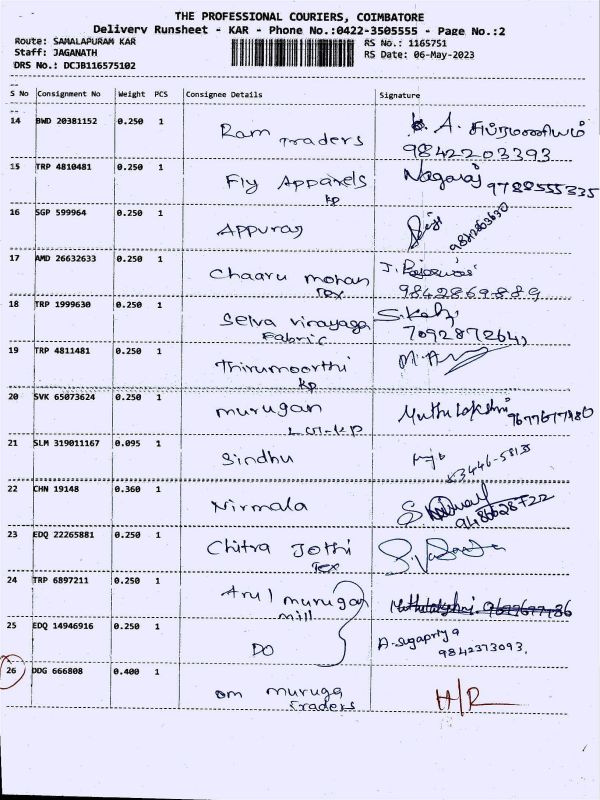 THE PROFESSIONAL COURIERS, COIMBATORE
Delivery Runsheet - KAR - Phone No.:0422-3505555 - Page No.:2
Route: SAMALAPURAM KAR
RS No.: 1165751
Staff: JAGANATH
RS Date: 06-May-2023
DRS No.: DCJB116575102
S No Consignment No Weight PCS Consignee Details Signature
14 BWD 20381152 0.250 1 Ram Traders A. சுப்ரமணியம்
9842203393
15 TRP 4810481 0.250 1 Fly Apparels Nagaraj 9788555335
KP
16 SGP 599964 0.250 1 Appuraj
17 AMD 26632633 0.250 1 Chaaru mohan
Tex 9842869889
18 TRP 1999630 0.250 1 Selva vinayaga
Fabric
19 TRP 4811481 0.250 1 Thirumoorthi
KP
20 SVK 65073624 0.250 1 murugan Muthulakshmi
21 SLM 319011167 0.095 1 Sindhu
22 CHN 19148 0.360 1 Nirmala
23 EDQ 22265881 0.250 1 Chitra Jothi
Tex
24 TRP 6897211 0.250 1 Arul murugan
mill
25 EDQ 14946916 0.250 1 DO A. Sugapriya
9842373093.
26 DDG 666808 0.400 1 om muruga H/R
Traders